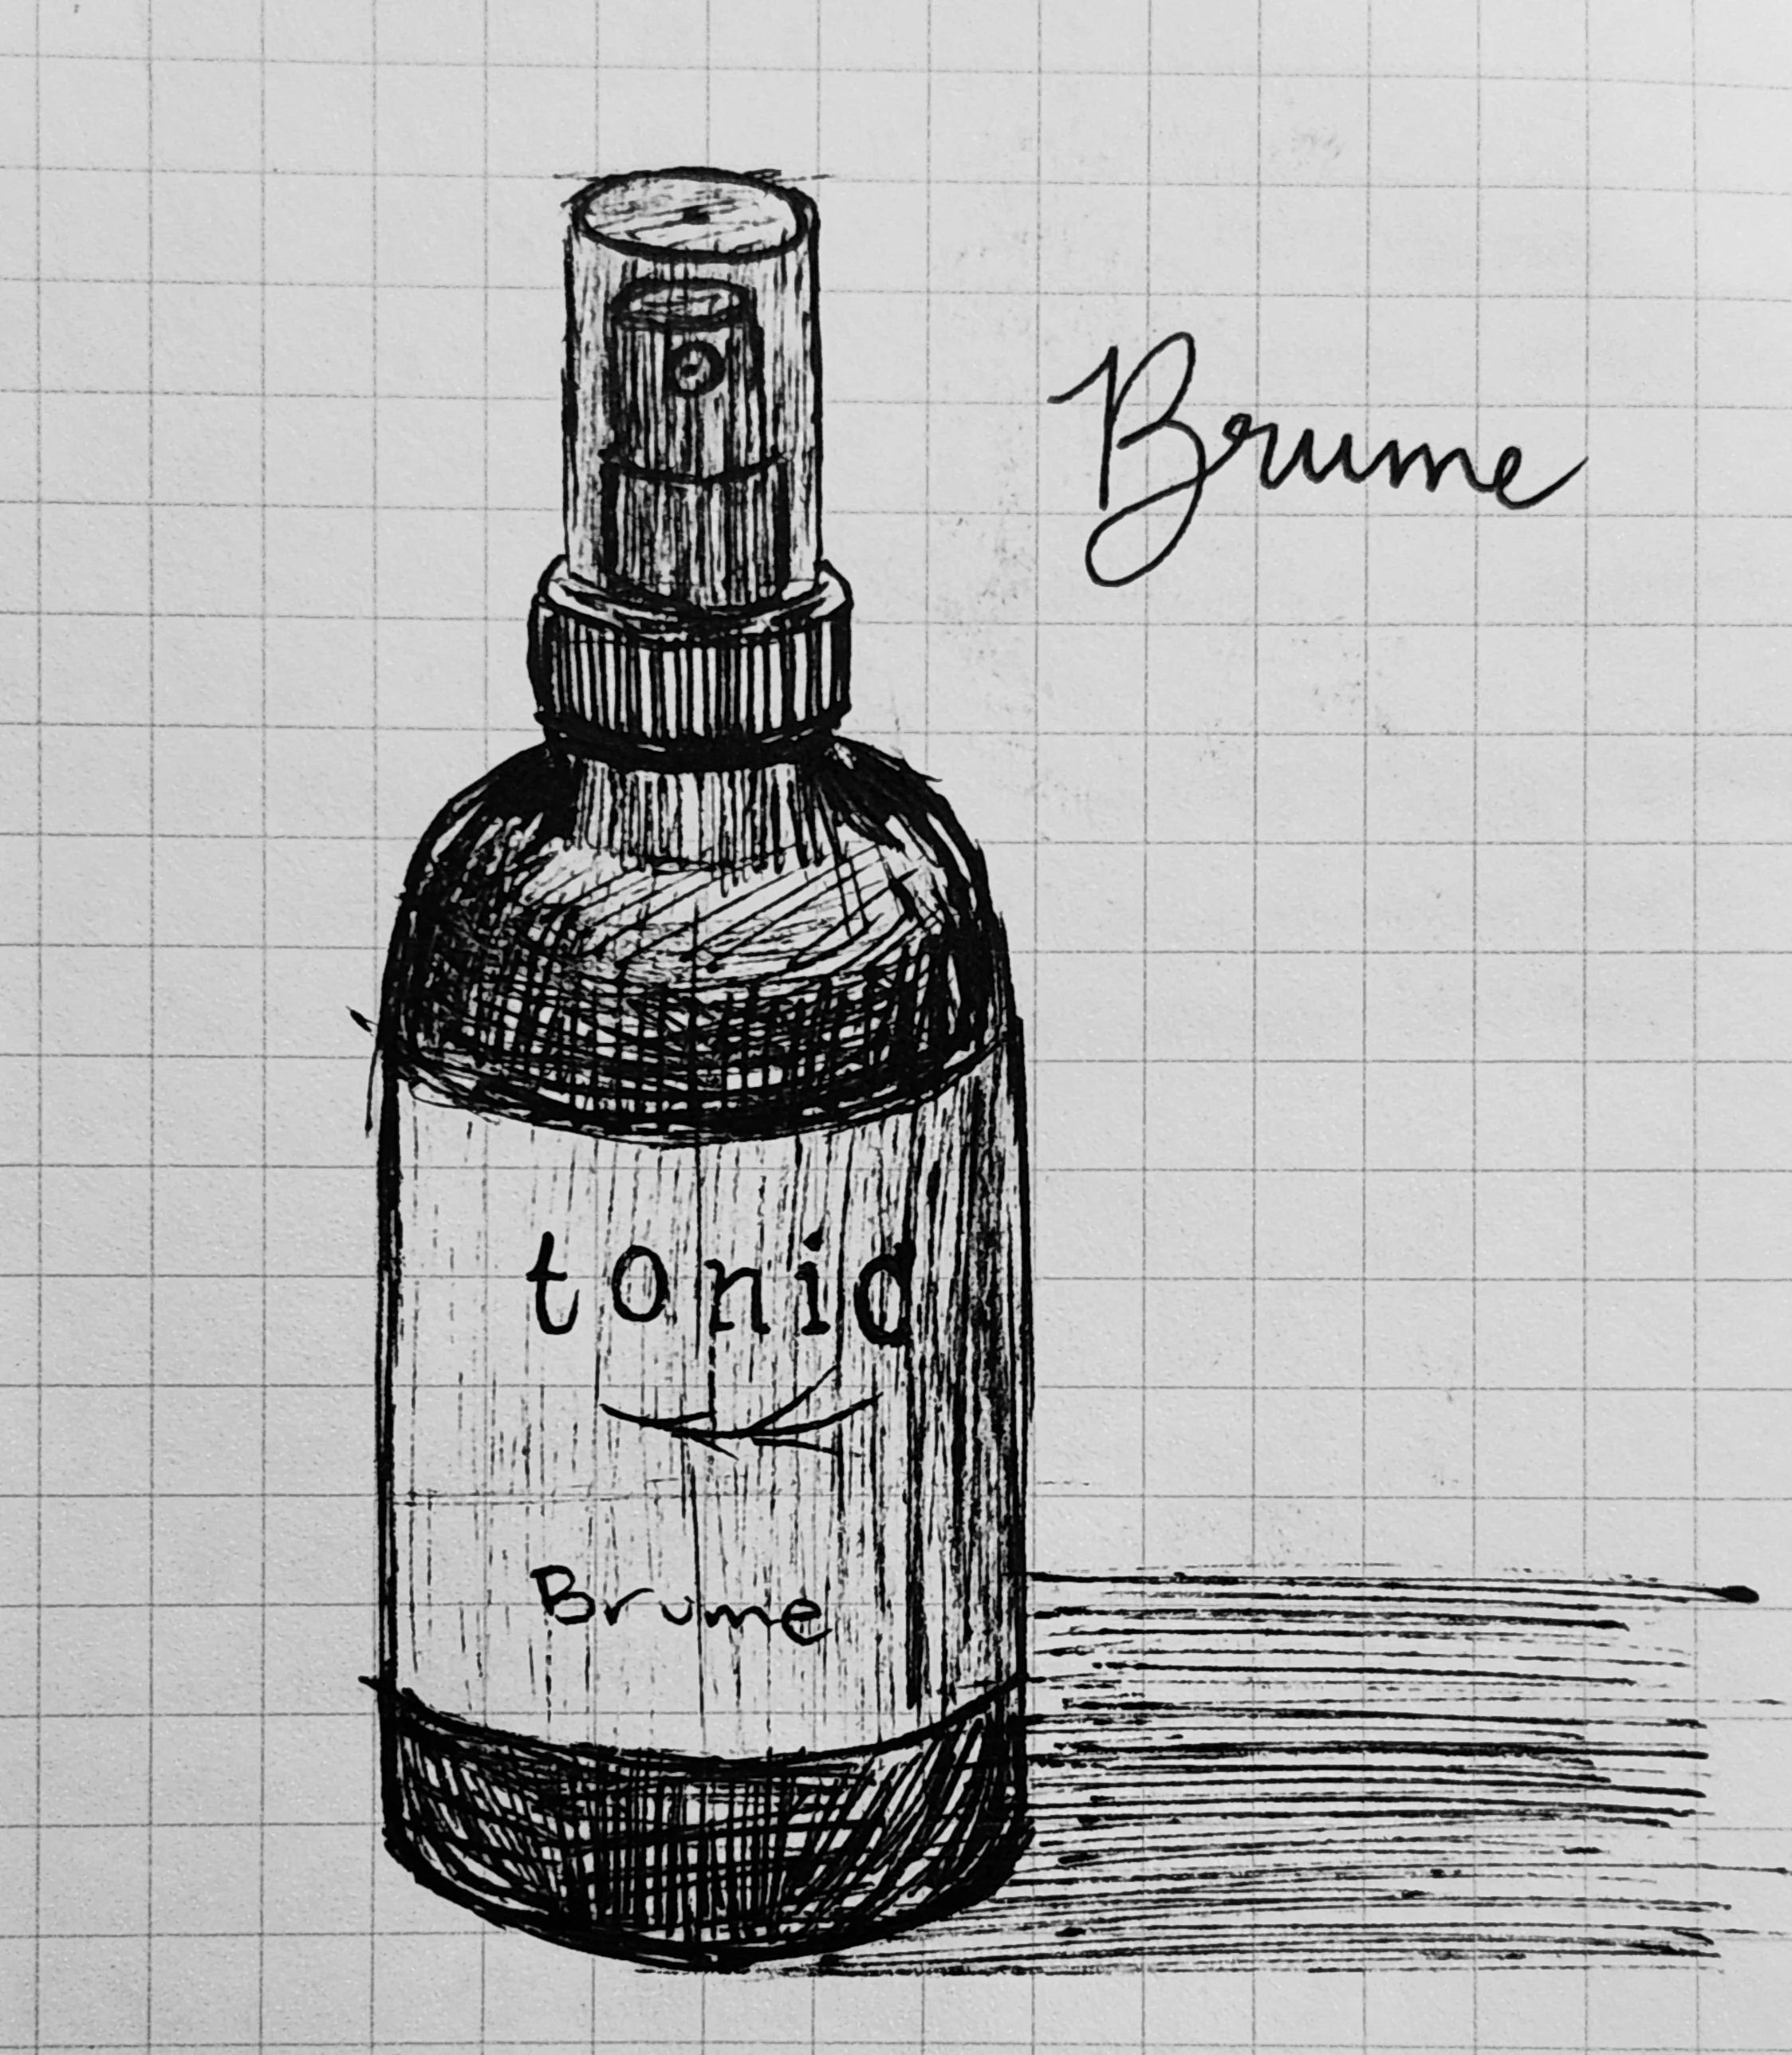 Brume
tonic
Brume